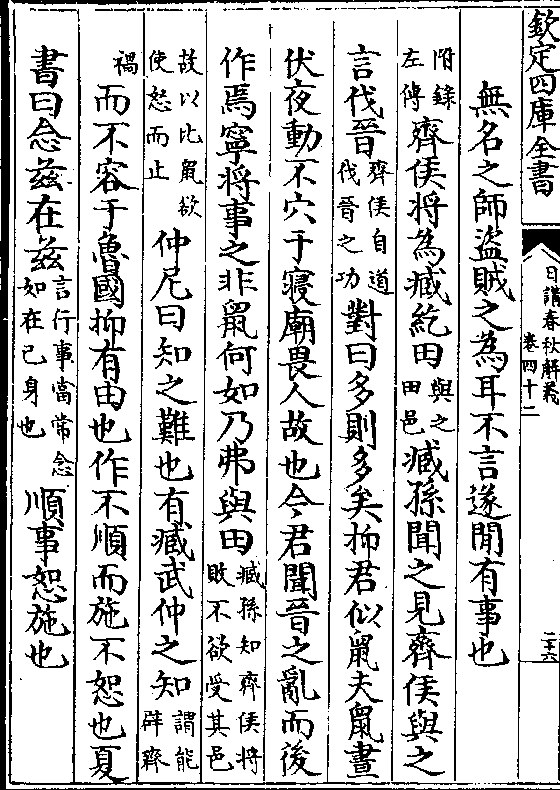 欽定四庫全書
日講春秋解義
卷四十二
三十六
無名之師盜賊之為耳不言遂間有事也
附錄左傳齊侯將為臧紇田與之田邑臧孫聞之見齊侯與之
言伐晉齊侯自道伐晉之功對曰多則多矣抑君似鼠夫鼠晝
伏夜動不穴于寢廟畏人故也今君聞晉之亂而後
作焉寧將事之非鼠何如乃弗與田臧孫知齊侯將敗不欲受其邑
故以比鼠欲使怒而止仲尼曰知之難也有臧武仲之知謂能辟齊
禍而不容于魯國抑有由也作不順而施不恕也夏
書曰念茲在茲言行事當常念如在已身也順事恕施也